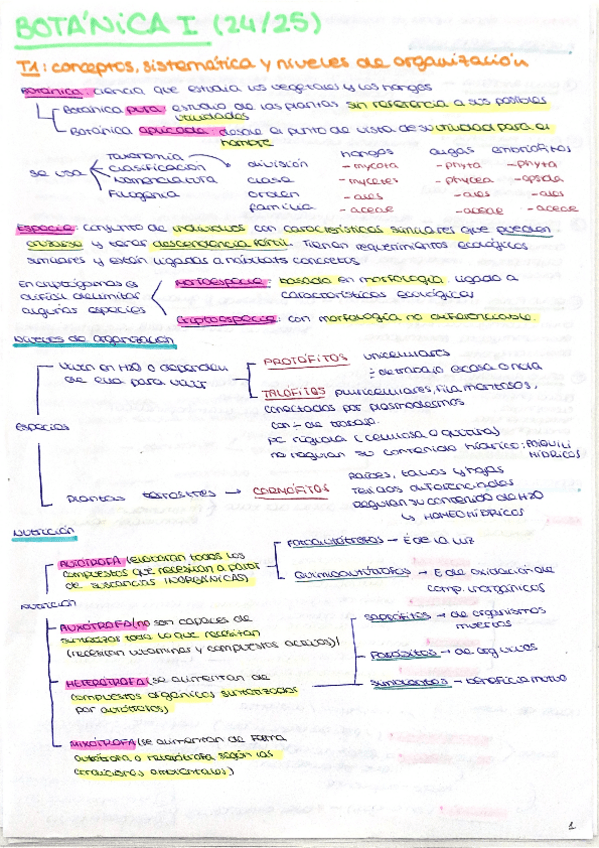 BOTÁNICA I (24/25)
T1: conceptos, sistemática y niveles de organización
Botánica: ciencia que estudia los vegetales y los hongos
Botánica pura: estudio de las plantas sin referencia a sus posibles
utilidades
Botánica aplicada: desde el punto de vista de su utilidad para el
hombre
se usa
Taxonomía
Clasificación
Nomenclatura
Filogenia
hongos algas embriófitos
división -mycota -phyta -phyta
clase -mycetes -phycea -opsida
orden -ales -ales -ales
familia -aceae -aceae -aceae
Especie: conjunto de individuos con características similares que pueden
cruzarse y tener descendencia fértil. Tienen requerimientos ecológicos
similares y están ligadas a hábitats concretos
En criptógamas es
difícil delimitar
algunas especies
Morfoespecie: basada en morfología. Ligado a
características ecológicas
Criptoespecie: con morfología no diferenciable.
Niveles de organización
especies
Viven en H2O o dependen
de ella para vivir
PROTÓFITOS unicelulares
÷ de trabajo escasa o nula
TALÓFITOS pluricelulares, filamentosos,
conectados por plasmodesmos
con ÷ de trabajo.
PC rígida (celulosa o quitina)
no regulan su contenido hídrico: POIQUILO
HÍDRICOS
Plantas terrestres → CORMÓFITOS
Raíces, tallos y hojas
Tejidos diferenciados
Regulan su contenido de H2O
↳ HOMEOHÍDRICOS
Nutrición
Nutrición
AUTÓTROFA (elaboran todos los
compuestos que necesitan a partir
de sustancias INORGÁNICAS)
Fotoautótrofos → E de la luz
Quimioautótrofos → E de oxidación de
comp. inorgánicos
AUXÓTROFA (no son capaces de
sintetizar todo lo que necesitan
(necesitan vitaminas y compuestos activos))
HETERÓTROFA (se alimentan de
compuestos orgánicos sintetizados
por autótrofos)
Saprófitos → de organismos
muertos
Parásitos → de org vivos
Simbiontes → beneficio mutuo
MIXÓTROFA (se alimentan de forma
autótrofa o heterótrofa según las
condiciones ambientales)
1